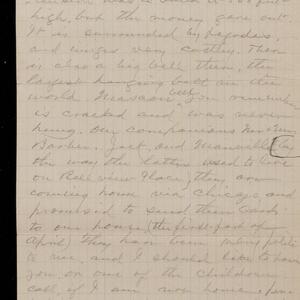 high, but the money gave out.
It is surrounded by Pagodas,
and images very costly. There
is also a big bell there, the
largest hanging bell in the
world Mascow bell you remember
is cracked and was never
hung. Our companions Mr & Mrs
Barber, Jack, and Manuel (by
the way the latter used to live
on Belleview Place) they are
coming home via Chicago and
promised to send their cards
to our house (the first part of
April) They have been very polite
to me, and I should like to have
you or one of the children
call if I am not home.